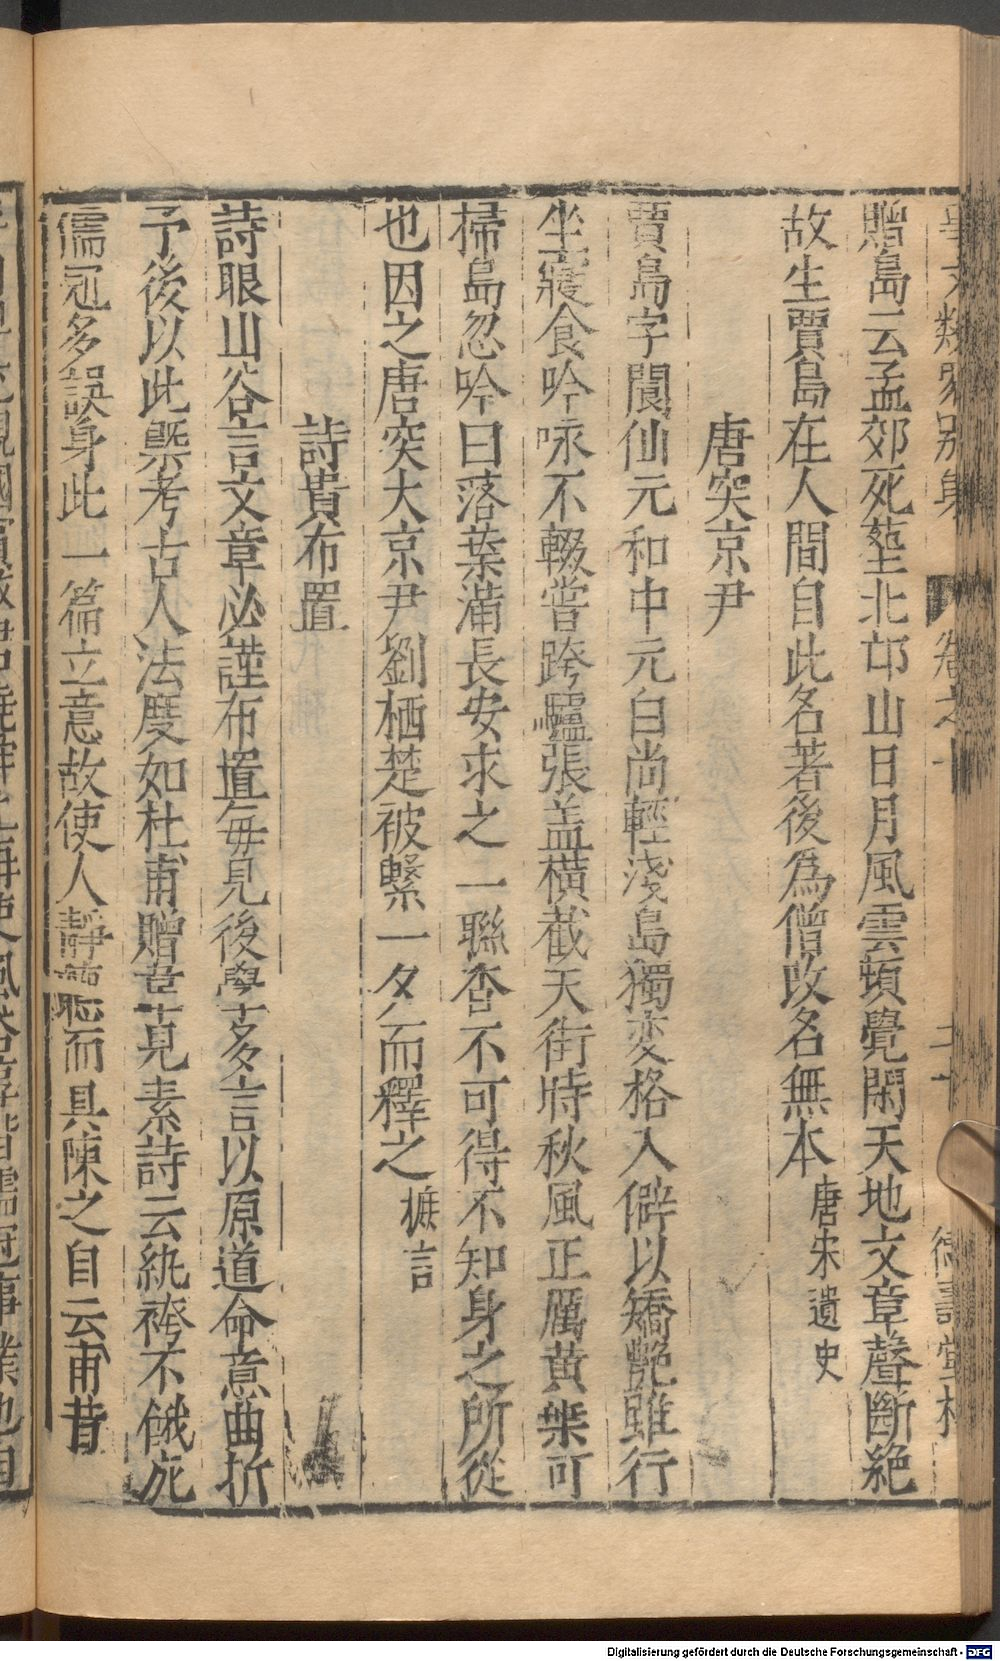 贈島云孟郊死塟北邙山日月風雲頓覺閑天地文章聲斷絕
故生賈島在人間自此名著後為僧改名無本唐宋遺史
唐突京尹
賈島字閬仙元和中元白尚輕淺島獨変格入僻以矯艷雖行
坐寢食吟咏不輟嘗跨驢張盖橫截天街時秋風正厲黄葉可
掃島忽吟曰落葉滿長安求之一聯杳不可得不知身之所從
也因之唐突大京尹劉栖楚被繫一夕而釋之摭言
詩貴布置
詩眼山谷言文章必謹布置每見後學多言以原道命意曲折
予後以此槩考古人法度如杜甫贈韋見素詩云紈袴不餓死
儒冠多誤身此一篇立意故使人靜聽而具陳之自云甫昔
Digitalisierung gefördert durch die Deutsche Forschungsgemeinschaft - DFG